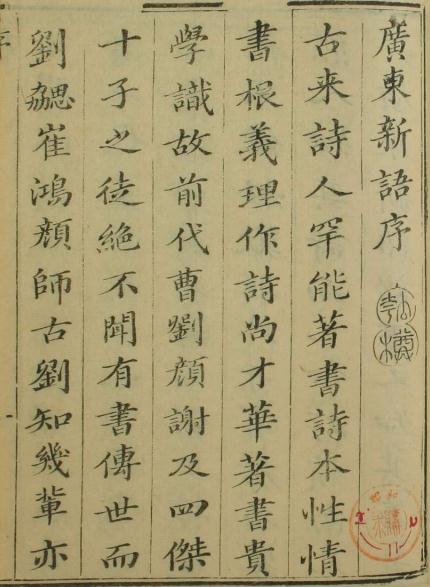 廣東新語序
古来詩人罕能著書詩本性情
書根義理作詩尚才華著書貴
學識故前代曹劉顔謝及四傑
十子之徒絶不聞有書傳世而
劉勰崔鴻顔師古劉知幾輩亦
序